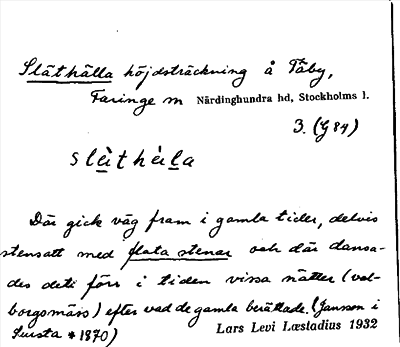 Släthälla höjdsträckning å Täby,
Faringe sn Närdinghundra hd, Stockholms l.
3. (G 84)
slèthèla
Där gick väg fram i gamla tider, delvis
stensatt med flata stenar och där dansa-
des deti förr i tiden vissa nätter (val-
borgsmäss) efter vad de gamla berättade. (Jansson i
Sursta * 1870)
Lars Levi Læstadius 1932